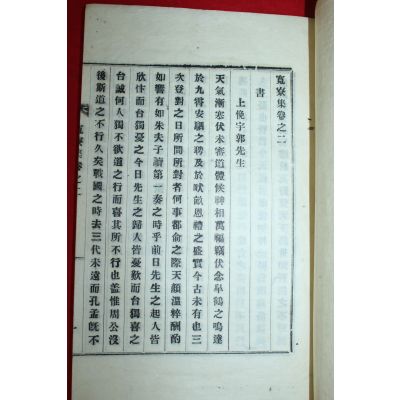 寬寮集卷之二
書
上俛宇郭先生
天氣漸寒伏未審道體候神相萬福竊伏念皐鶴之鳴達
於九霄安車之聘及於畎畝恩禮之盛實今古未有也三
次登對之日所問所對者何事都俞之際天顔溫粹酬酌
如響有如朱夫子讀第一奏之時乎前日先生之起人皆
欣忭而台獨憂之今日先生之歸人皆憂歎而台獨喜之
台誠何人獨不欲道之行而喜其所不行也蓋惟周公沒
後斯道之不行久矣戰國之時去三代未遠而孔孟旣不
寬寮集卷之二